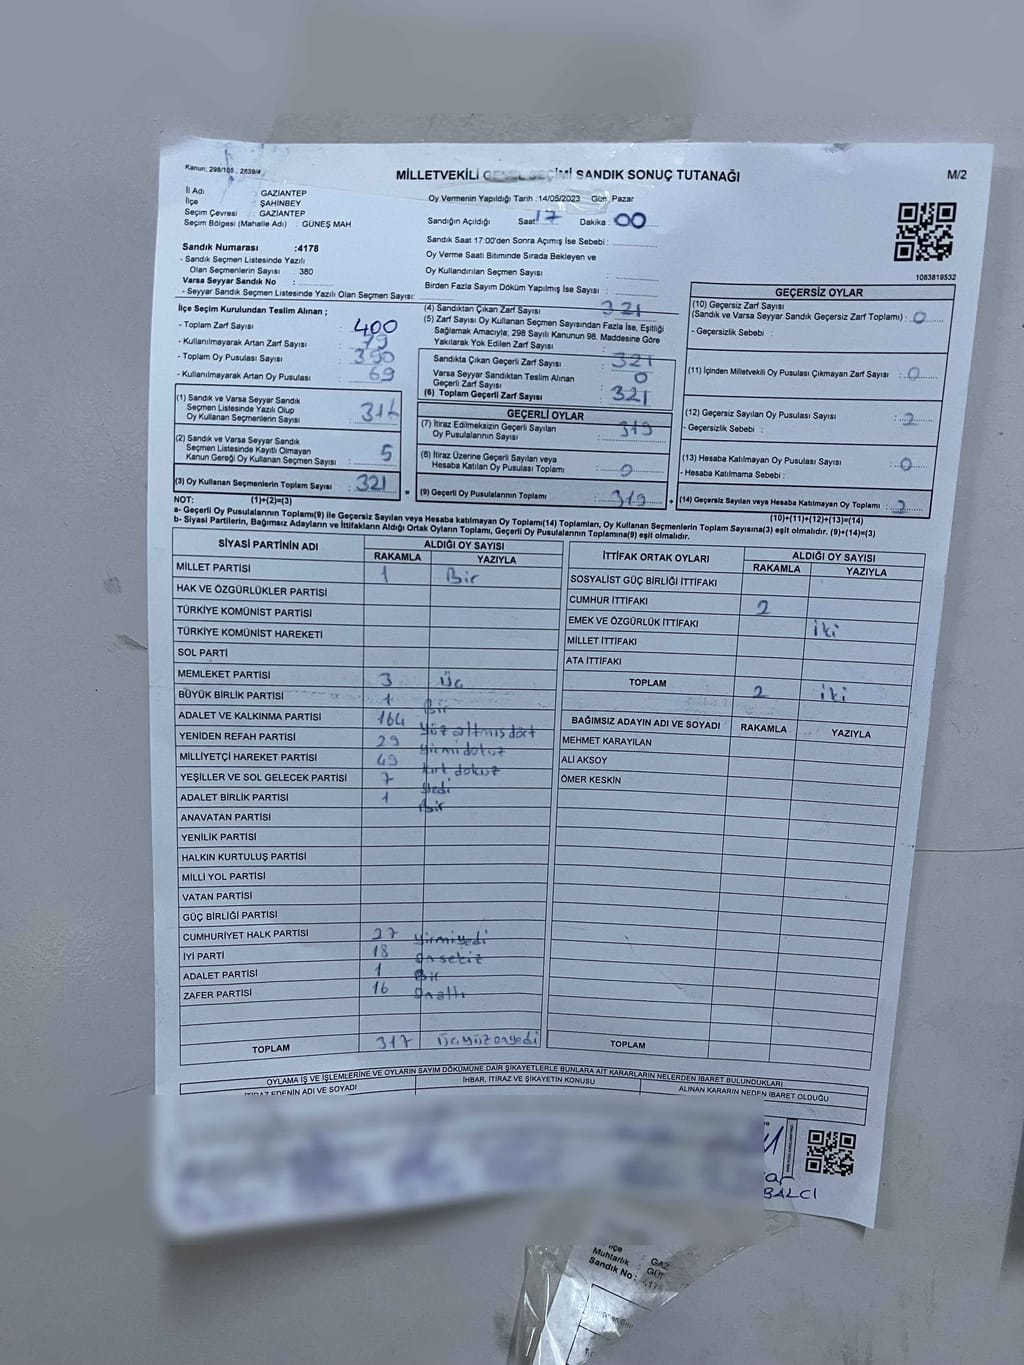 Kanun; 298/105 ; 2839/4
MİLLETVEKİLİ GENEL SEÇİMİ SANDIK SONUÇ TUTANAĞI
M/2
İl Adı : GAZİANTEP
İlçe : ŞAHİNBEY
Seçim Çevresi : GAZİANTEP
Seçim Bölgesi (Mahalle Adı) : GÜNEŞ MAH
Sandık Numarası :4178
- Sandık Seçmen Listesinde Yazılı
Olan Seçmenlerin Sayısı : 380
Varsa Seyyar Sandık No :
- Seyyar Sandık Seçmen Listesinde Yazılı Olan Seçmen Sayısı:
Oy Vermenin Yapıldığı Tarih :14/05/2023 Gün: Pazar
Sandığın Açıldığı Saat: 17 Dakika : 00
Sandık Saat 17:00'den Sonra Açımış İse Sebebi :
Oy Verme Saati Bitiminde Sırada Bekleyen ve
Oy Kullandırılan Seçmen Sayısı :
Birden Fazla Sayım Döküm Yapılmış İse Sayısı :
1083819532
İlçe Seçim Kurulundan Teslim Alınan ;
- Toplam Zarf Sayısı : 400
- Kullanılmayarak Artan Zarf Sayısı : 79
- Toplam Oy Pusulası Sayısı : 390
- Kullanılmayarak Artan Oy Pusulası : 69
(1) Sandık ve Varsa Seyyar Sandık
Seçmen Listesinde Yazılı Olup
Oy Kullanan Seçmenlerin Sayısı : 316
(2) Sandık ve Varsa Seyyar Sandık
Seçmen Listesinde Kayıtlı Olmayan
Kanun Gereği Oy Kullanan Seçmen Sayısı : 5
(3) Oy Kullanan Seçmenlerin Toplam Sayısı : 321
(4) Sandıktan Çıkan Zarf Sayısı : 321
(5) Zarf Sayısı Oy Kullanan Seçmen Sayısından Fazla İse, Eşitliği
Sağlamak Amacıyla, 298 Sayılı Kanunun 98. Maddesine Göre
Yakılarak Yok Edilen Zarf Sayısı :
Sandıkta Çıkan Geçerli Zarf Sayısı : 321
Varsa Seyyar Sandıktan Teslim Alınan
Geçerli Zarf Sayısı : 0
(6) Toplam Geçerli Zarf Sayısı : 321
GEÇERLİ OYLAR
(7) İtiraz Edilmeksizin Geçerli Sayılan
Oy Pusulalarının Sayısı : 319
(8) İtiraz Üzerine Geçerli Sayılan veya
Hesaba Katılan Oy Pusulası Toplamı : 0
(9) Geçerli Oy Pusulalarının Toplamı : 319
GEÇERSİZ OYLAR
(10) Geçersiz Zarf Sayısı
(Sandık ve Varsa Seyyar Sandık Geçersiz Zarf Toplamı) : 0
- Geçersizlik Sebebi :
(11) İçinden Milletvekili Oy Pusulası Çıkmayan Zarf Sayısı : 0
(12) Geçersiz Sayılan Oy Pusulası Sayısı : 2
- Geçersizlik Sebebi :
(13) Hesaba Katılmayan Oy Pusulası Sayısı : 0
- Hesaba Katılmama Sebebi :
(14) Geçersiz Sayılan veya Hesaba Katılmayan Oy Toplamı : 2
NOT: (1)+(2)=(3)
(10)+(11)+(12)+(13)=(14)
a- Geçerli Oy Pusulasının Toplamı(9) ile Geçersiz Sayılan veya Hesaba katılmayan Oy Toplamı(14) Toplamları, Oy Kullanan Seçmenlerin Toplam Sayısına(3) eşit olmalıdır. (9)+(14)=(3)
b- Siyasi Partilerin, Bağımsız Adayların ve İttifakların Aldığı Ortak Oyların Toplamı, Geçerli Oy Pusulalarının Toplamına(9) eşit olmalıdır.
SİYASİ PARTİNİN ADI ALDIĞI OY SAYISI
RAKAMLA YAZIYLA
MİLLET PARTİSİ 1 Bir
HAK VE ÖZGÜRLÜKLER PARTİSİ
TÜRKİYE KOMÜNİST PARTİSİ
TÜRKİYE KOMÜNİST HAREKETİ
SOL PARTİ
MEMLEKET PARTİSİ 3 Üç
BÜYÜK BİRLİK PARTİSİ 1 Bir
ADALET VE KALKINMA PARTİSİ 164 yüz altmış dört
YENİDEN REFAH PARTİSİ 29 yirmi dokuz
MİLLİYETÇİ HAREKET PARTİSİ 49 kırk dokuz
YEŞİLLER VE SOL GELECEK PARTİSİ 7 yedi
ADALET BİRLİK PARTİSİ 1 Bir
ANAVATAN PARTİSİ
YENİLİK PARTİSİ
HALKIN KURTULUŞ PARTİSİ
MİLLİ YOL PARTİSİ
VATAN PARTİSİ
GÜÇ BİRLİĞİ PARTİSİ
CUMHURİYET HALK PARTİSİ 27 yirmiyedi
İYİ PARTİ 18 onsekiz
ADALET PARTİSİ 1 Bir
ZAFER PARTİSİ 16 onaltı
TOPLAM 317 Üçyüzonyedi
İTTİFAK ORTAK OYLARI ALDIĞI OY SAYISI
RAKAMLA YAZIYLA
SOSYALİST GÜÇ BİRLİĞİ İTTİFAKI
CUMHUR İTTİFAKI 2 iki
EMEK VE ÖZGÜRLÜK İTTİFAKI
MİLLET İTTİFAKI
ATA İTTİFAKI
TOPLAM 2 iki
BAĞIMSIZ ADAYIN ADI VE SOYADI RAKAMLA YAZIYLA
MEHMET KARAYILAN
ALİ AKSOY
ÖMER KESKİN
TOPLAM
OYLAMA İŞ VE İŞLEMLERİNE VE OYLARIN SAYIM DÖKÜMÜNE DAİR ŞİKAYETLERLE BUNLARA AİT KARARLARIN NELERDEN İBARET BULUNDUKLARI
İTİRAZ EDENİN ADI VE SOYADI İHBAR, İTİRAZ VE ŞİKAYETİN KONUSU ALINAN KARARIN NEDEN İBARET OLDUĞU
BALCI
İlçe : GAZ
Muhtarlık :
Sandık No :